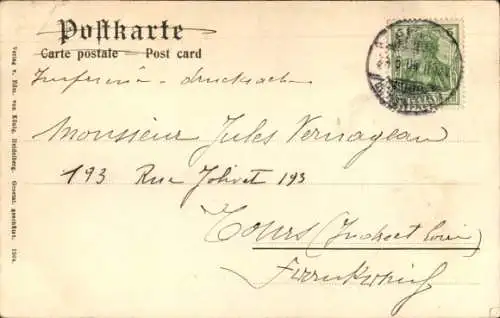 Postkarte
Carte postale Post card
Drucksache
Monsieur Jules Vernageau
193 Rue Jolivet 193
Tours (Indreet loire)
Frankreich
Verlag v. Edm. von König, Heidelberg. Gesetzl. geschützt. 1904.